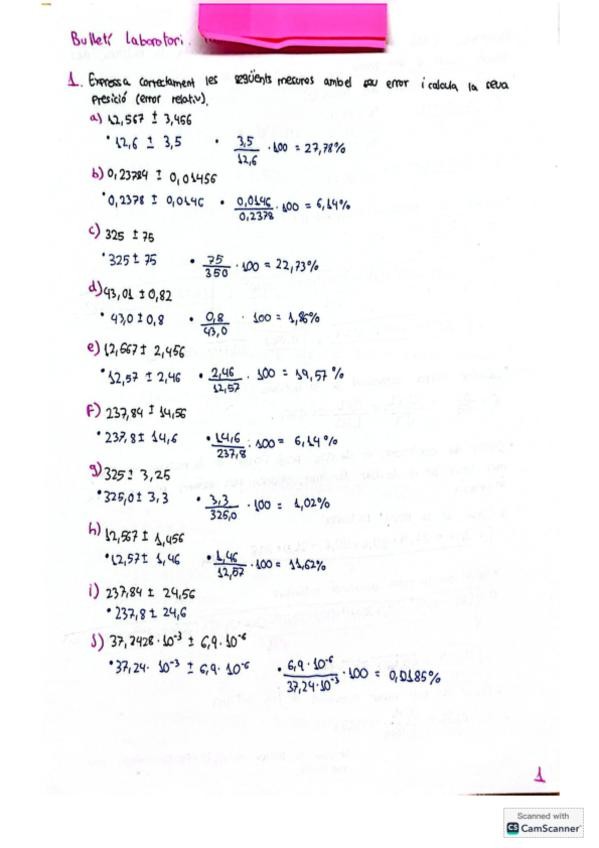 Bulletí Laboratori.
1. Expressa correctament les següents mesures ambel seu error i calcula la seva
presició (error relatiu).
a) 12,567 ± 3,456
• 12,6 ± 3,5 • 3,5/12,6 · 100 = 27,78%
b) 0,23784 ± 0,01456
• 0,2378 ± 0,0146 • 0,0146/0,2378 · 100 = 6,14%
c) 325 ± 75
• 325 ± 75 • 75/350 · 100 = 22,73%
d) 43,01 ± 0,82
• 43,0 ± 0,8 • 0,8/43,0 · 100 = 1,86%
e) 12,567 ± 2,456
• 12,57 ± 2,46 • 2,46/12,57 · 100 = 19,57%
F) 237,84 ± 14,56
• 237,8 ± 14,6 • 14,6/237,8 · 100 = 6,14%
g) 325 ± 3,25
• 325,0 ± 3,3 • 3,3/325,0 · 100 = 1,02%
h) 12,567 ± 1,456
• 12,57 ± 1,46 • 1,46/12,57 · 100 = 11,62%
i) 237,84 ± 24,56
• 237,8 ± 24,6
J) 37,2428 · 10⁻³ ± 6,9 · 10⁻⁶
• 37,24 · 10⁻³ ± 6,9 · 10⁻⁶ • 6,9 · 10⁻⁶/37,24 · 10⁻³ · 100 = 0,0185%
1
Scanned with
CS CamScanner